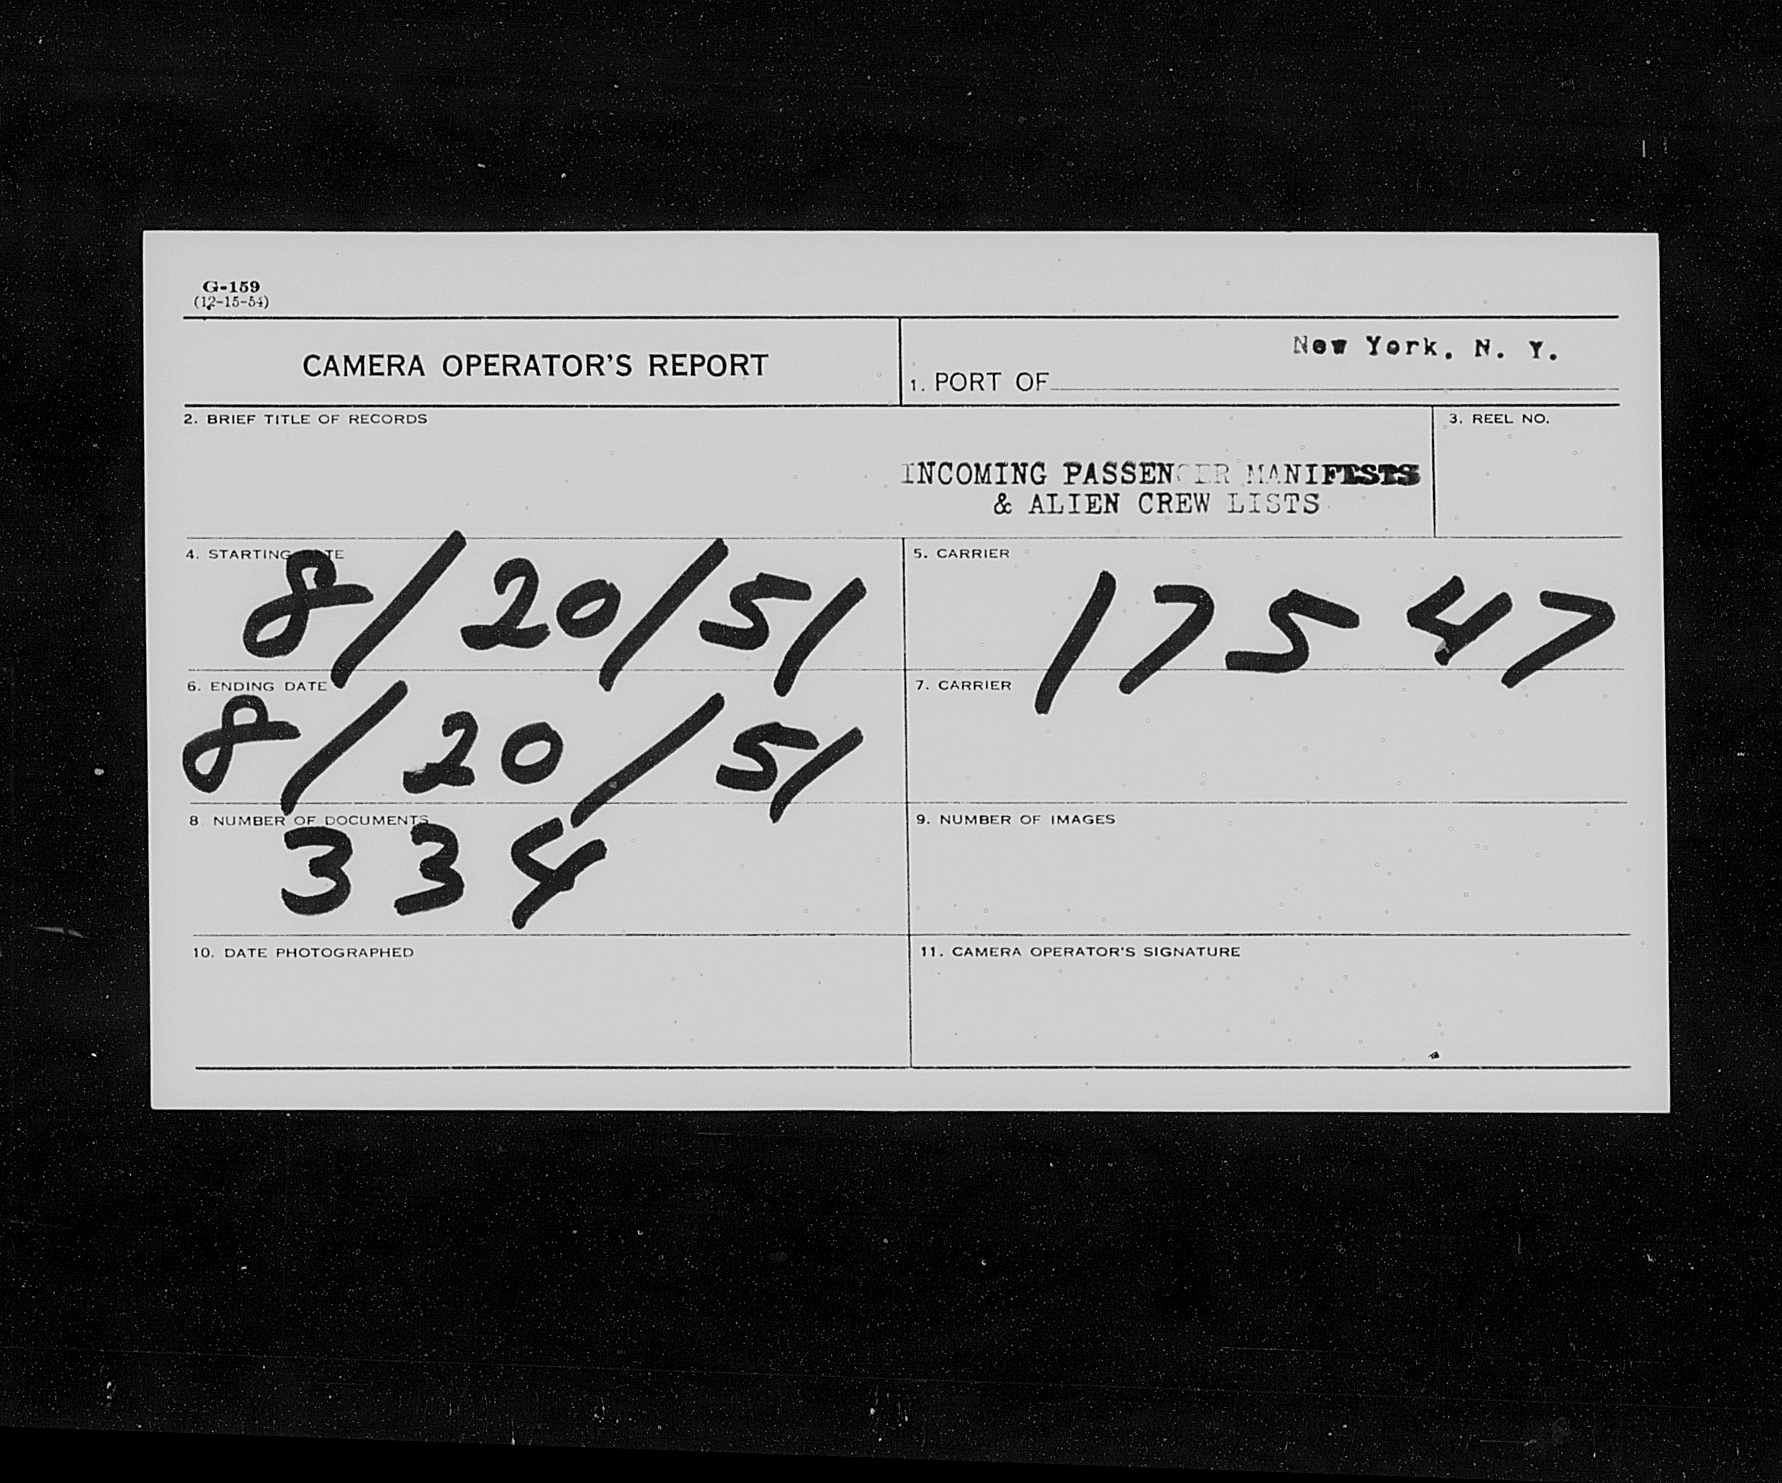 G-159
(12-15-54)
CAMERA OPERATOR'S REPORT
1. PORT OF New York, N. Y.
2. BRIEF TITLE OF RECORDS
INCOMING PASSENGER MANIFESTS
& ALIEN CREW LISTS
3. REEL NO.
4. STARTING DATE
8/20/51
5. CARRIER
17547
6. ENDING DATE
8/20/51
7. CARRIER
8 NUMBER OF DOCUMENTS
334
9. NUMBER OF IMAGES
10. DATE PHOTOGRAPHED
11. CAMERA OPERATOR'S SIGNATURE